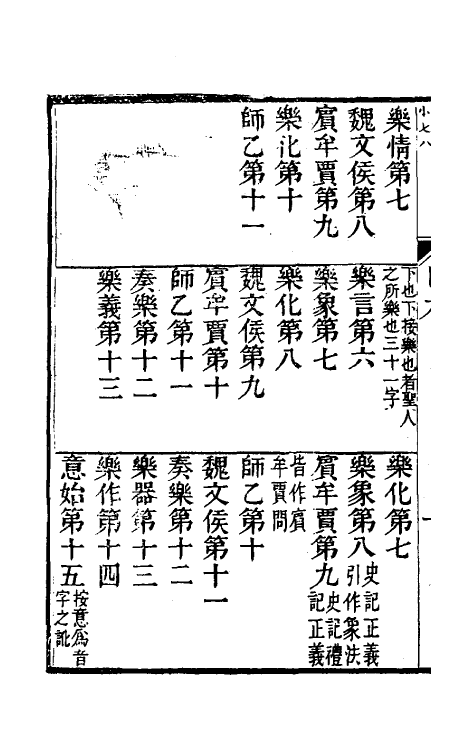 樂情第七
魏文侯第八
賓牟賈第九
樂化第十
師乙第十一
下也下按樂也者聖人
之所樂也三十一字
樂言第六
樂象第七
樂化第八
魏文侯第九
賓牟賈第十
師乙第十一
奏樂第十二
樂義第十三
樂化第七
樂象第八史記正義
引作象法
賓牟賈第九史記禮
記正義
皆作賓
牟賈問
師乙第十
魏文侯第十一
奏樂第十二
樂器第十三
樂作第十四
意始第十五按意爲音
字之訛